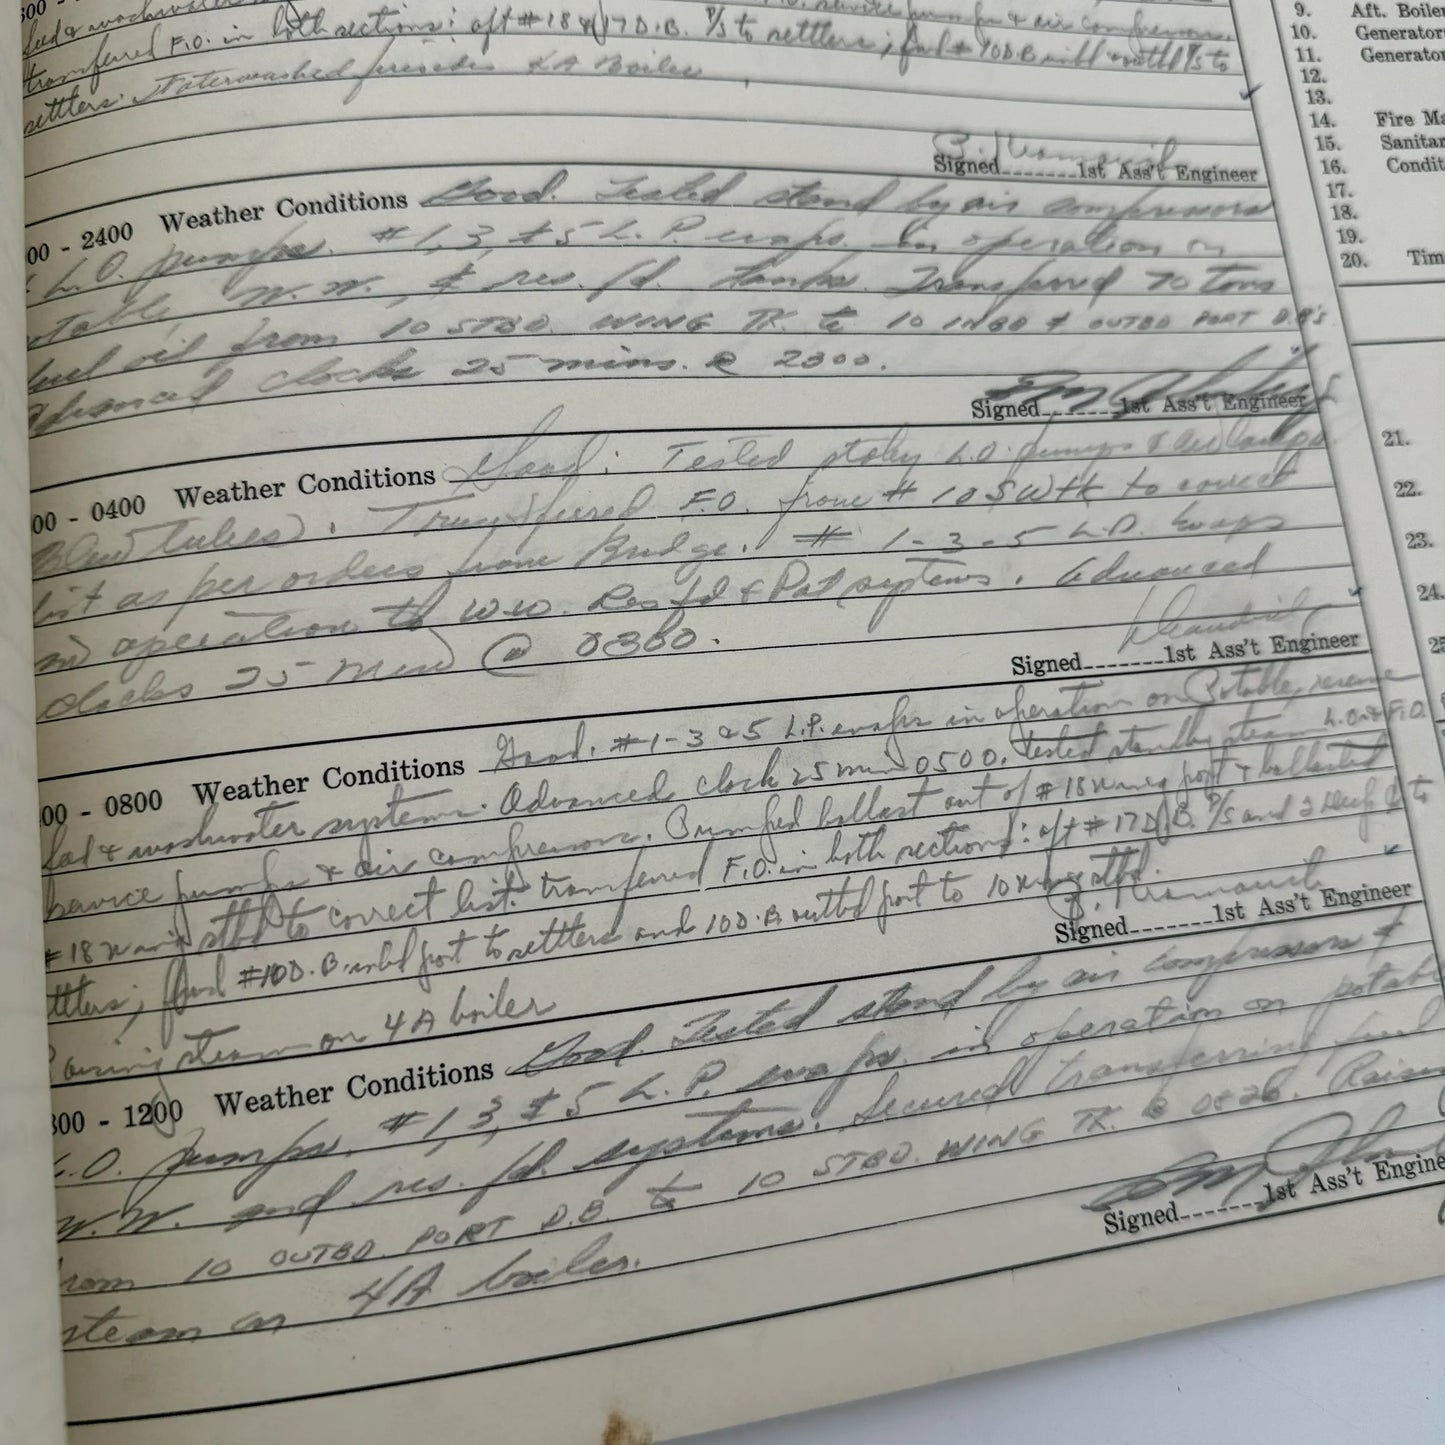 transferred F.O. in both sections: aft #18 & 17 D.B. P/S to settlers; fwd #10 D.B. P/S to
settlers. Waterwashed 4A Boiler
Signed.......1st Ass't Engineer
00 - 2400 Weather Conditions Good. Tested stand by air compressors
& L.O. pumps. #1, 3, & 5 L.P. evaps. in operation on
potable, W.W., & res. fd. tanks. Transferred 70 tons
fuel oil from 10 STBD. WING TK. to 10 INBD & OUTBD PORT D.B's
Advanced clocks 25 mins. @ 2300.
Signed.......1st Ass't Engineer
00 - 0400 Weather Conditions Good. Tested stby L.O. pumps &
Blew tubes. Transfered F.O. from #10 S W tk to correct
list as per orders from Bridge. #1-3-5 L.P. Evaps
in operation to W.W. Res fd & Pot systems. Advanced
clocks 25 min @
Signed.......1st Ass't Engineer
00 - 0800 Weather Conditions Good. #1-3 & 5 L.P. evaps in operation on Potable, reserve
feed & washwater systems. Advanced clock 25 min 0500. Tested standby steam L.O. & F.O.
service pumps & air compressors. Pumped ballast out of #18 wing port & ballasted
#18 wing stbd to correct list. transferred F.O. in both sections: aft #17 D.B. P/S and 2 Deep to
settlers; fwd #10 D.B. inbd port to settlers and 10 D.B. outbd port to 10 wing stbd.
Signed.......1st Ass't Engineer
Raising steam on 4A boiler
800 - 1200 Weather Conditions Good. Tested stand by air compressors &
L.O. pumps. #1, 3, & 5 L.P. evaps. in operation on potable
W.W. and res. fd. systems. Secured transferring fuel
from 10 OUTBD. PORT D.B. to 10 STBD. WING TK. @ 0820. Raised
steam on 4A boiler.
Signed.......1st Ass't Enginee
9. Aft. Boiler
10. Generator
11. Generato
12.
13.
14. Fire Ma
15. Sanitar
16. Condit
17.
18.
19.
20. Tim
21.
22.
23.
24.
25